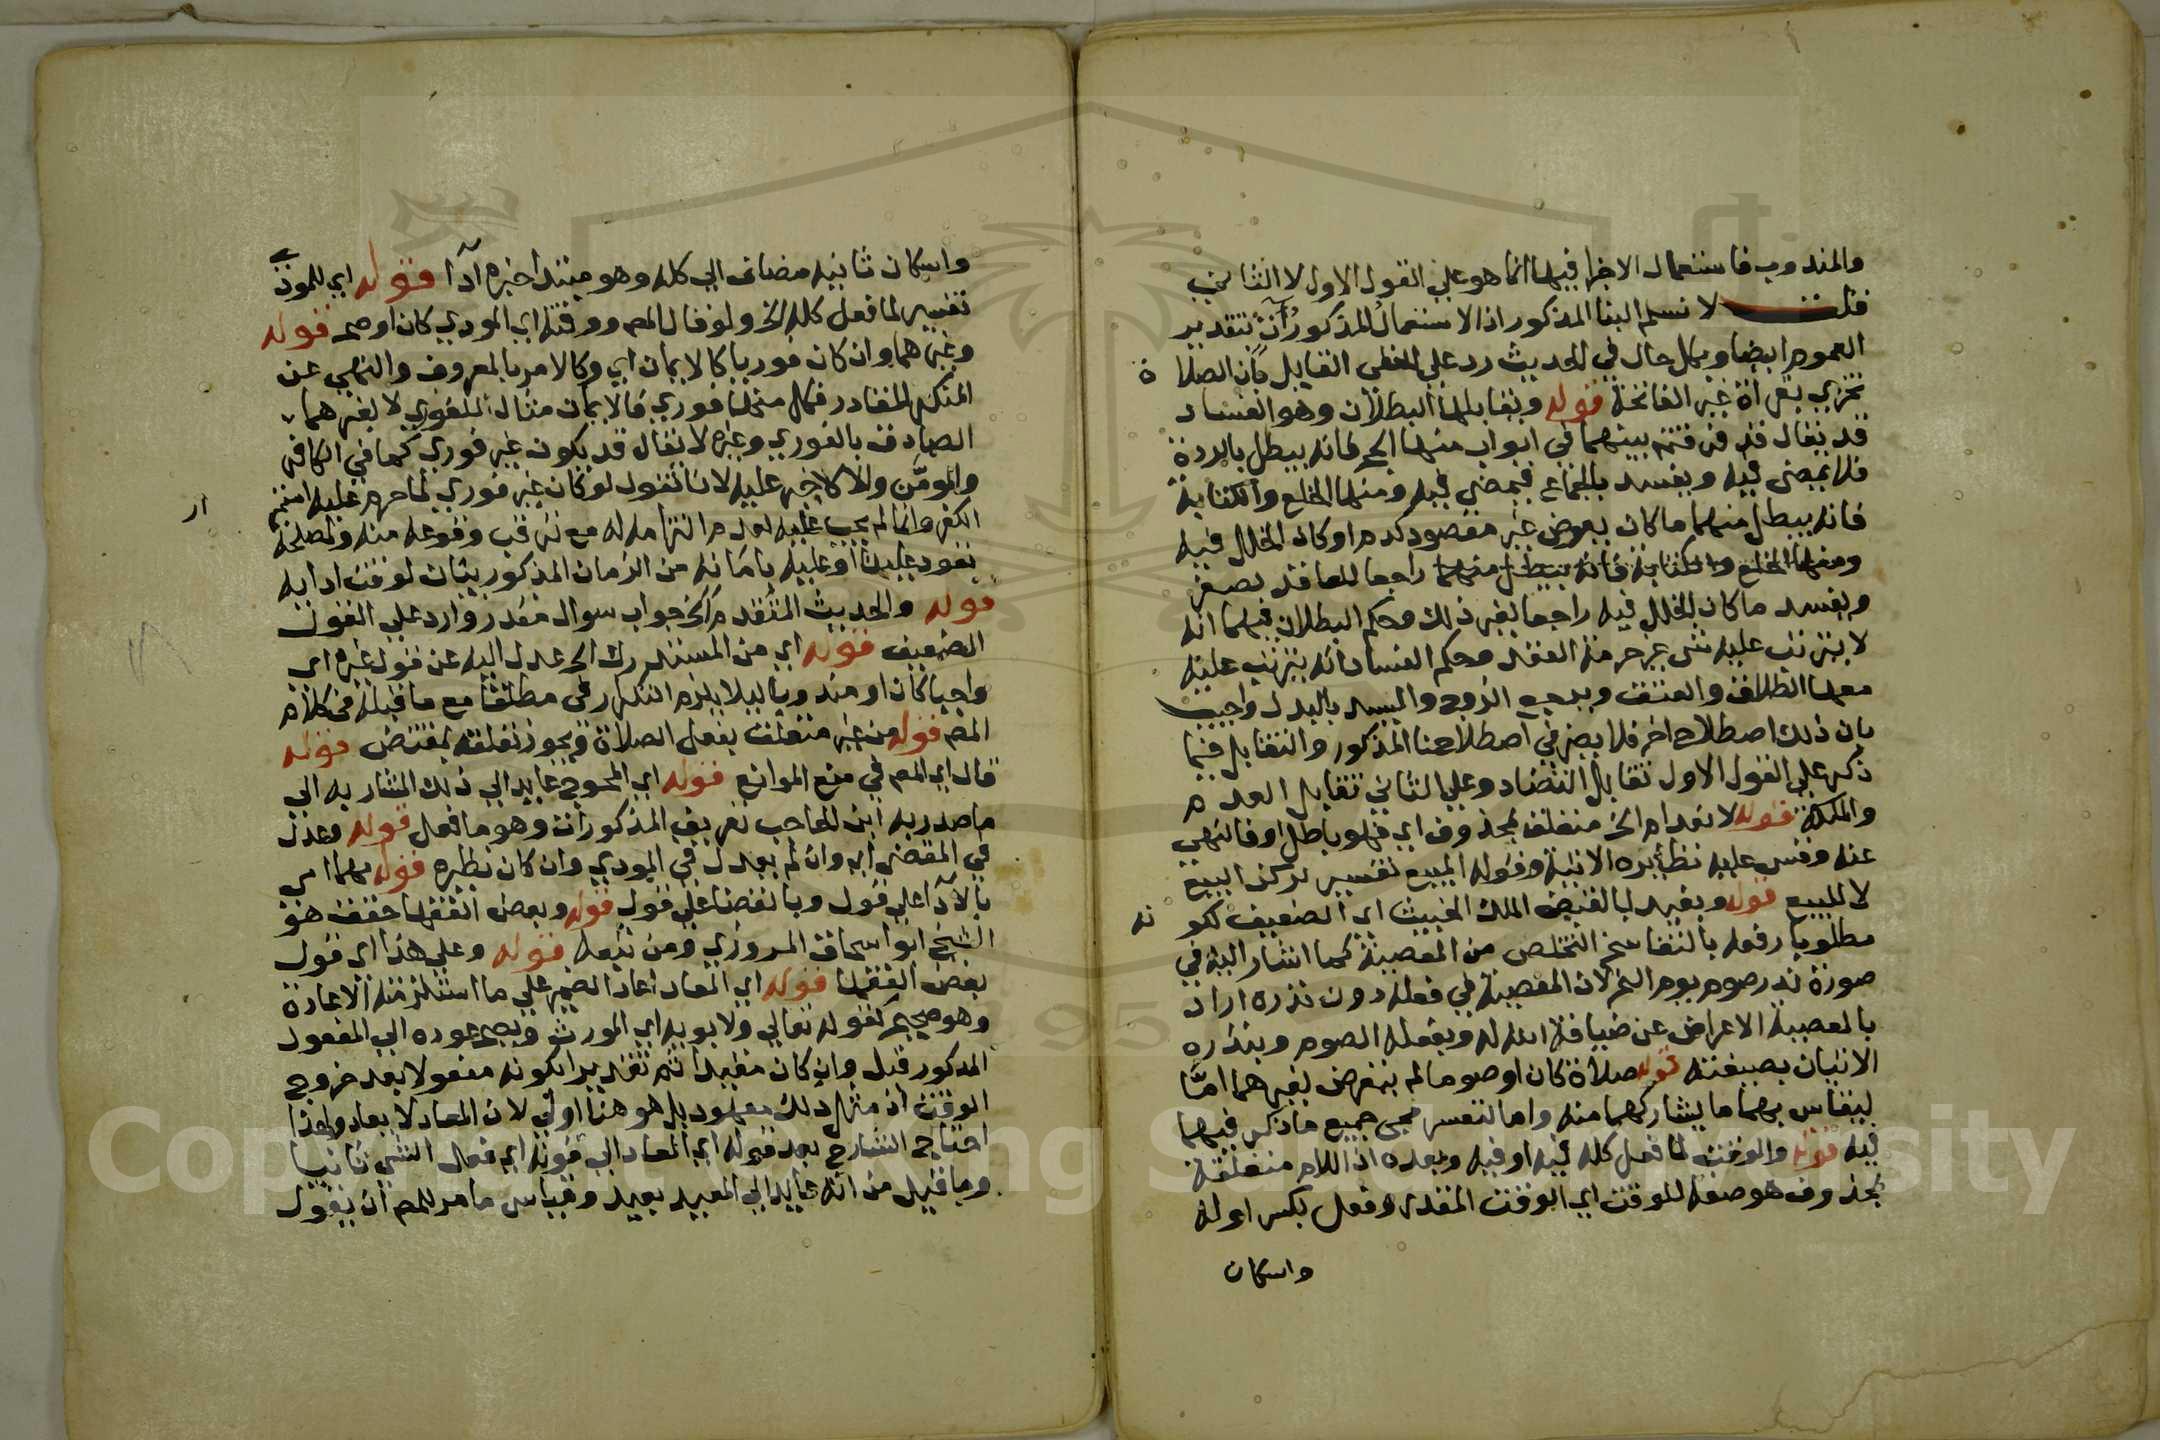 والمندوب فاستعمال الاجزا فيها انما هو على القول الاول لا الثاني
قلت لا نسلم البنا المذكور اذ الاستعمال المذكور آت بتقدير
العموم ايضا وبكل حال في الحديث رد على الحنفي القايل بان الصلاة
تجزي بقراة غير الفاتحة قوله ويقابلها البطلان وهو الفساد
قد يقال قد فرقتم بينهما في ابواب منها الحج فانه يبطل بالردة
فلا يمضي فيه ويفسد بالجماع فيمضي فيه ومنها الخلع والكتابة
فانه يبطل منهما ما كان بعوض غير مقصود كدم او كان الخلل فيه
ومنها الخلع والكتابة فانه يبطل منهما راجعا للعاقد كصغر
ويفسد ما كان الخلل فيه راجعا لغير ذلك وحكم البطلان فيهما انه
لا يترتب عليه شي وحكم الفساد انه يترتب عليه
معها الطلاق والعتق ويرجع الزوج والسيد بالبدل واجيب
بان ذلك اصطلاح اخر فلا يضر في اصطلاحنا المذكور والتقابل فيما
ذكر على القول الاول تقابل التضاد وعلى الثاني تقابل العدم
والملكة قوله لانعدام الخ متعلق بمحذوف اي فهو باطل او فالنهي
عنه وقس عليه نظايره الاتية وقوله المبيع تفسير لركن البيع
لا للبيع قوله ويفيد بالقبض الملك الخبيث اي الضعيف لكونه
مطلوبا رفعه بالتفاسخ للتخلص من المعصية كما اشار اليه في
صورة نذر صوم يوم النحر لان المعصية في فعله دون نذره اراد
بالمعصية الاعراض عن ضيافة الله له وبفعله الصوم وبنذره
الاتيان بصيغته قوله صلاة كان او صوما لم يتعرض لغيرهما اما
ليقاس بهما ما يشاركهما منه واما لتعسر مجي جميع ما ذكر فيهما
فيه قوله والوقت لما فعل كله فيه او فيه وبعده اذ اللام متعلقة
بمحذوف هو صفة للوقت اي الوقت المقدر وفعل بكسر اوله
واسكان
واسكان ثانيه مضاف الى كله وهو مبتدا خبره آدا قوله اي للمودى
تفسير لما فعل كله الخ ولو قال المص ووقته اي المودي كان اوضح قوله
وغيرهما وان كان فوريا كالايمان اي وكالامر بالمعروف والنهي عن
المنكر للقادر فكل منها فوري فالايمان مثال للفوري لا لغيرهما
الصادق بالفوري وغيره لا يقال قد يكون غير فوري كما في الكافر
والمؤمن والا لا حجر عليه لانا نقول لو كان غير فوري لما حرم عليه استمرار
الكفر وانما لم يجب عليه لعدم التزامه له مع ترقب وقوعه منه ولمصلحة
تعود علينا او عليه بامانه من الزمان المذكور بيان لوقت ادايه
قوله والحديث المتقدم الخ جواب سوال مقدر وارد على القول
الضعيف قوله اي من المستدرك الخ عدل اليه عن قول غيره اي
واجبا كان او مندوبا ليلا يلزم التكرار في مطلقا مع ما قبله في كلام
المص قوله من غير متعلق بفعل الصلاة ويجوز تعلقه بمقتض قوله
قال اي المص في منع الموانع قوله اي المحوج عايد الى ذلك المشار به الى
ما صدر به ابن الحاجب تعريف المذكورات وهو ما فعل قوله وعدل
في المقضي اي وان لم يعدل في المودي وان كان نظيره قوله مهما مر
بالادآ على قول وبالقضا على قول قوله وبعض الفقها حقق هو
الشيخ ابو اسحاق المروزي ومن تبعه قوله وعلى هذا اي قول
بعض الفقها قوله اي المعاد اعاد الضمير على ما استلزمته الاعادة
وهو صحيح كقوله تعالى ولابويه اي المورث ويصح عوده الى المفعول
المذكور قبل وان كان مقيدا ثم تقديرا بكونه مفعولا بعد خروج
الوقت اذ مثل ذلك معهود بل هو هنا اولى لان المعاد لا يعاد ولهذا
احتاج الشارح بعد قوله اي المعاد الى قوله اي فعل الشي ثانيا
وما قيل من انه عايد الى المعيد بعيد وقياس ما مر للمص ان يقول